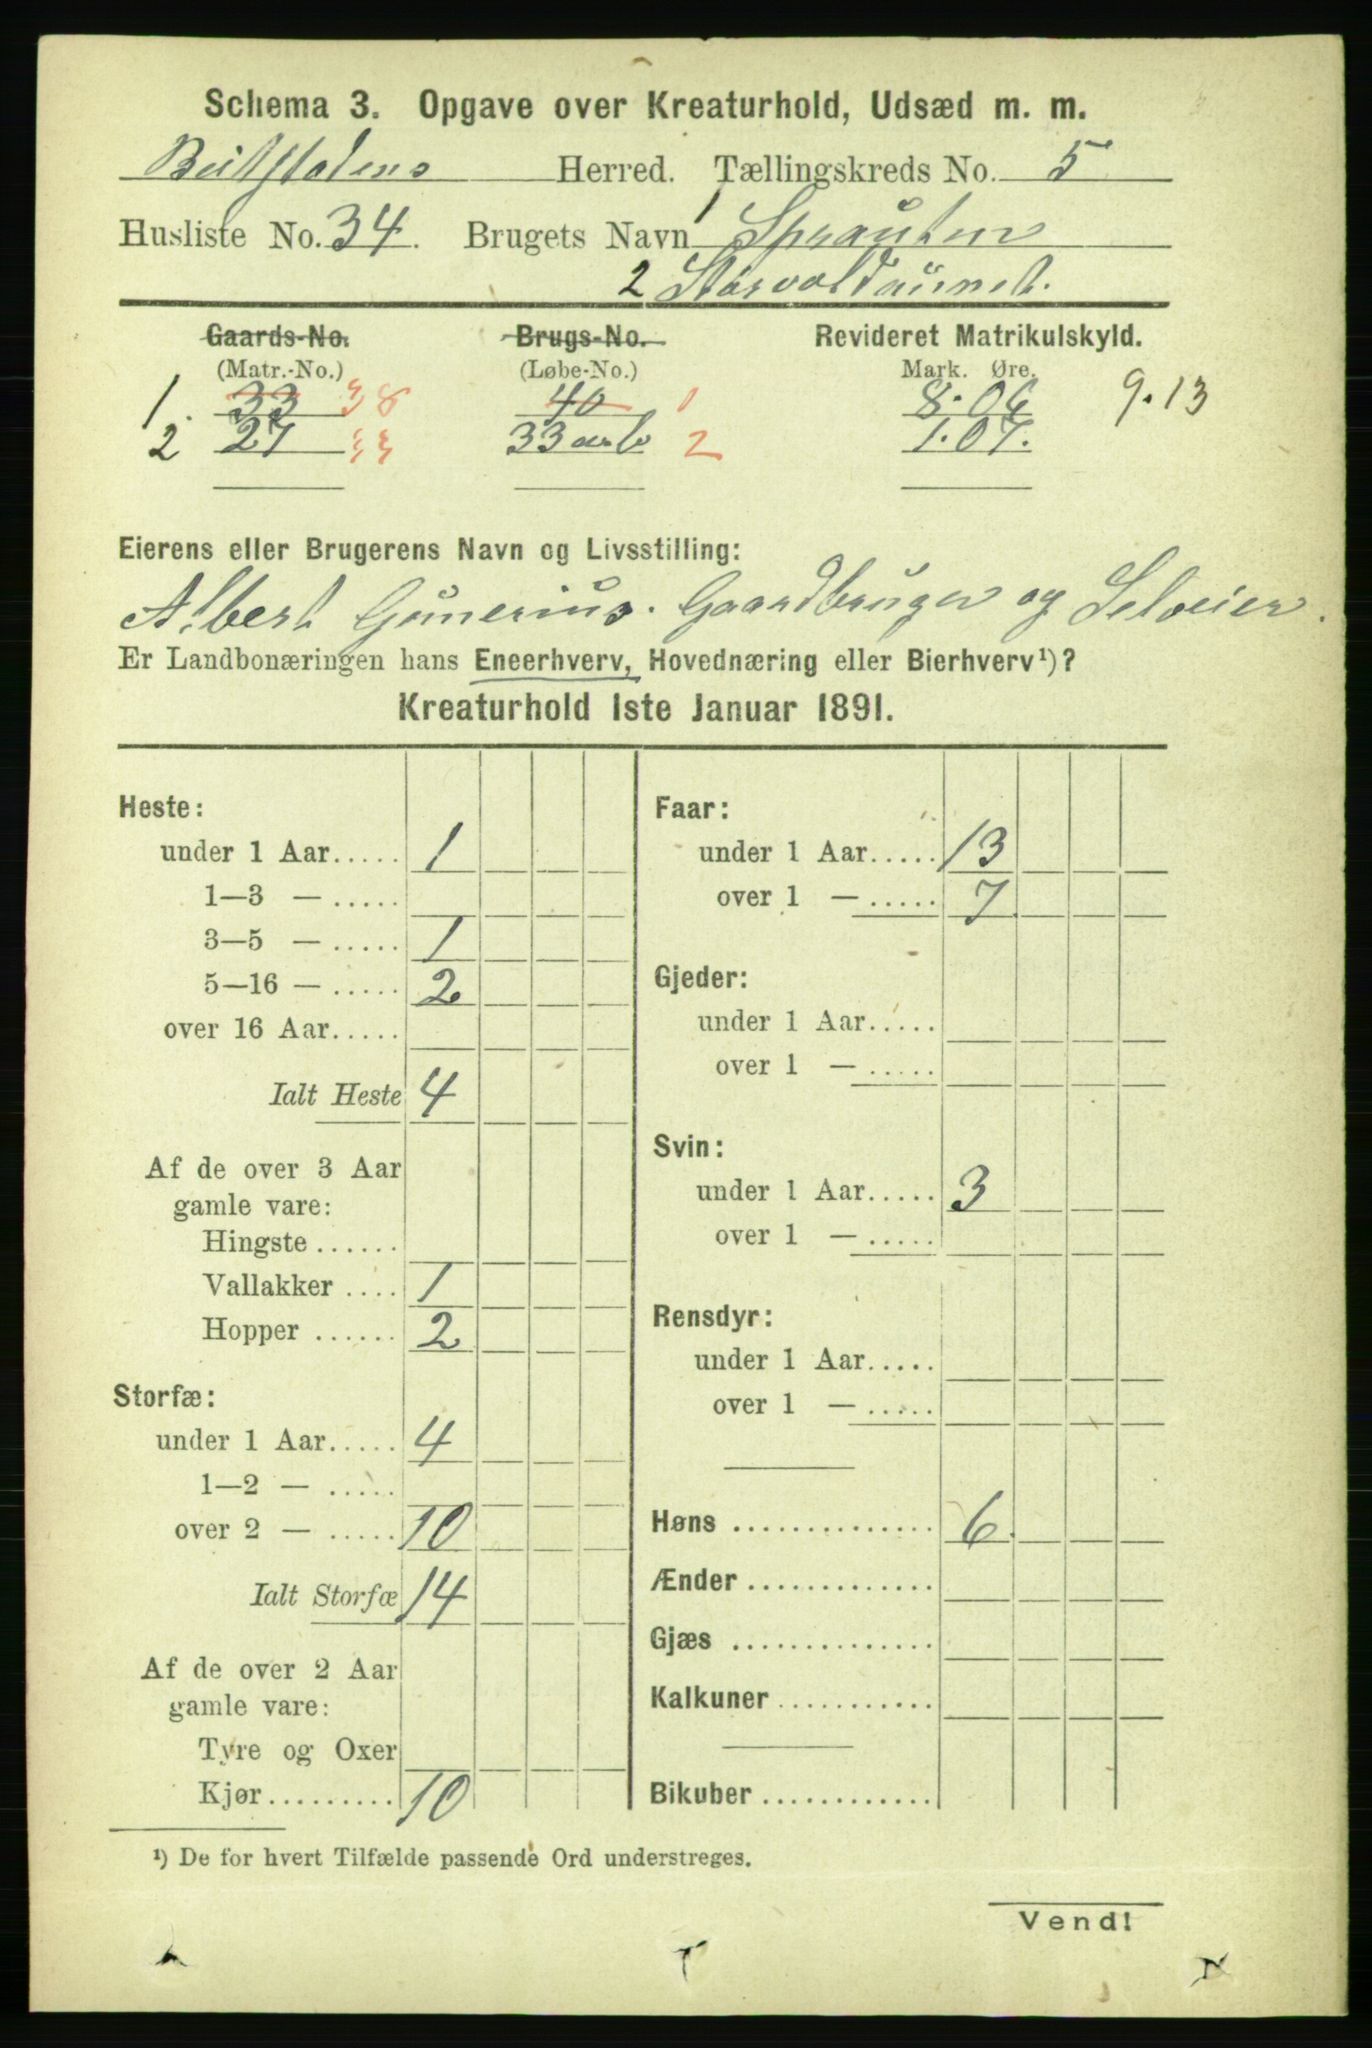 Schema 3. Opgave over Kreaturhold, Udsæd m. m.
Beitstadens Herred. Tællingskreds No. 5
Husliste No. 34. Brugets Navn 1 Sprauten
2 Storvoldaunet.
Gaards-No. Brugs-No. Revideret Matrikulskyld.
(Matr.-No.) (Løbe-No.) Mark. Øre.
1. 33 38 40 1 8.06 9.13
2. 27 33 33 a b 2 1.07.
Eierens eller Brugerens Navn og Livsstilling:
Albert Gunerius. Gaardbruger og Selveier.
Er Landbonæringen hans Eneerhverv, Hovednæring eller Bierhverv¹)?
Kreaturhold 1ste Januar 1891.
Heste:
under 1 Aar..... 1
1—3 — .....
3—5 — ..... 1
5—16 — ..... 2
over 16 Aar.....
Ialt Heste 4
Af de over 3 Aar
gamle vare:
Hingste ......
Vallakker .... 1
Hopper ...... 2
Storfæ:
under 1 Aar..... 4
1—2 — .....
over 2 — ..... 10
Ialt Storfæ 14
Af de over 2 Aar
gamle vare:
Tyre og Oxer
Kjør......... 10
Faar:
under 1 Aar..... 13
over 1 — ..... 7
Gjeder:
under 1 Aar.....
over 1 — .....
Svin:
under 1 Aar..... 3
over 1 — .....
Rensdyr:
under 1 Aar.....
over 1 — .....
Høns .............. 6
Ænder .............
Gjæs ..............
Kalkuner ...........
Bikuber ............
¹) De for hvert Tilfælde passende Ord understreges.
Vend!